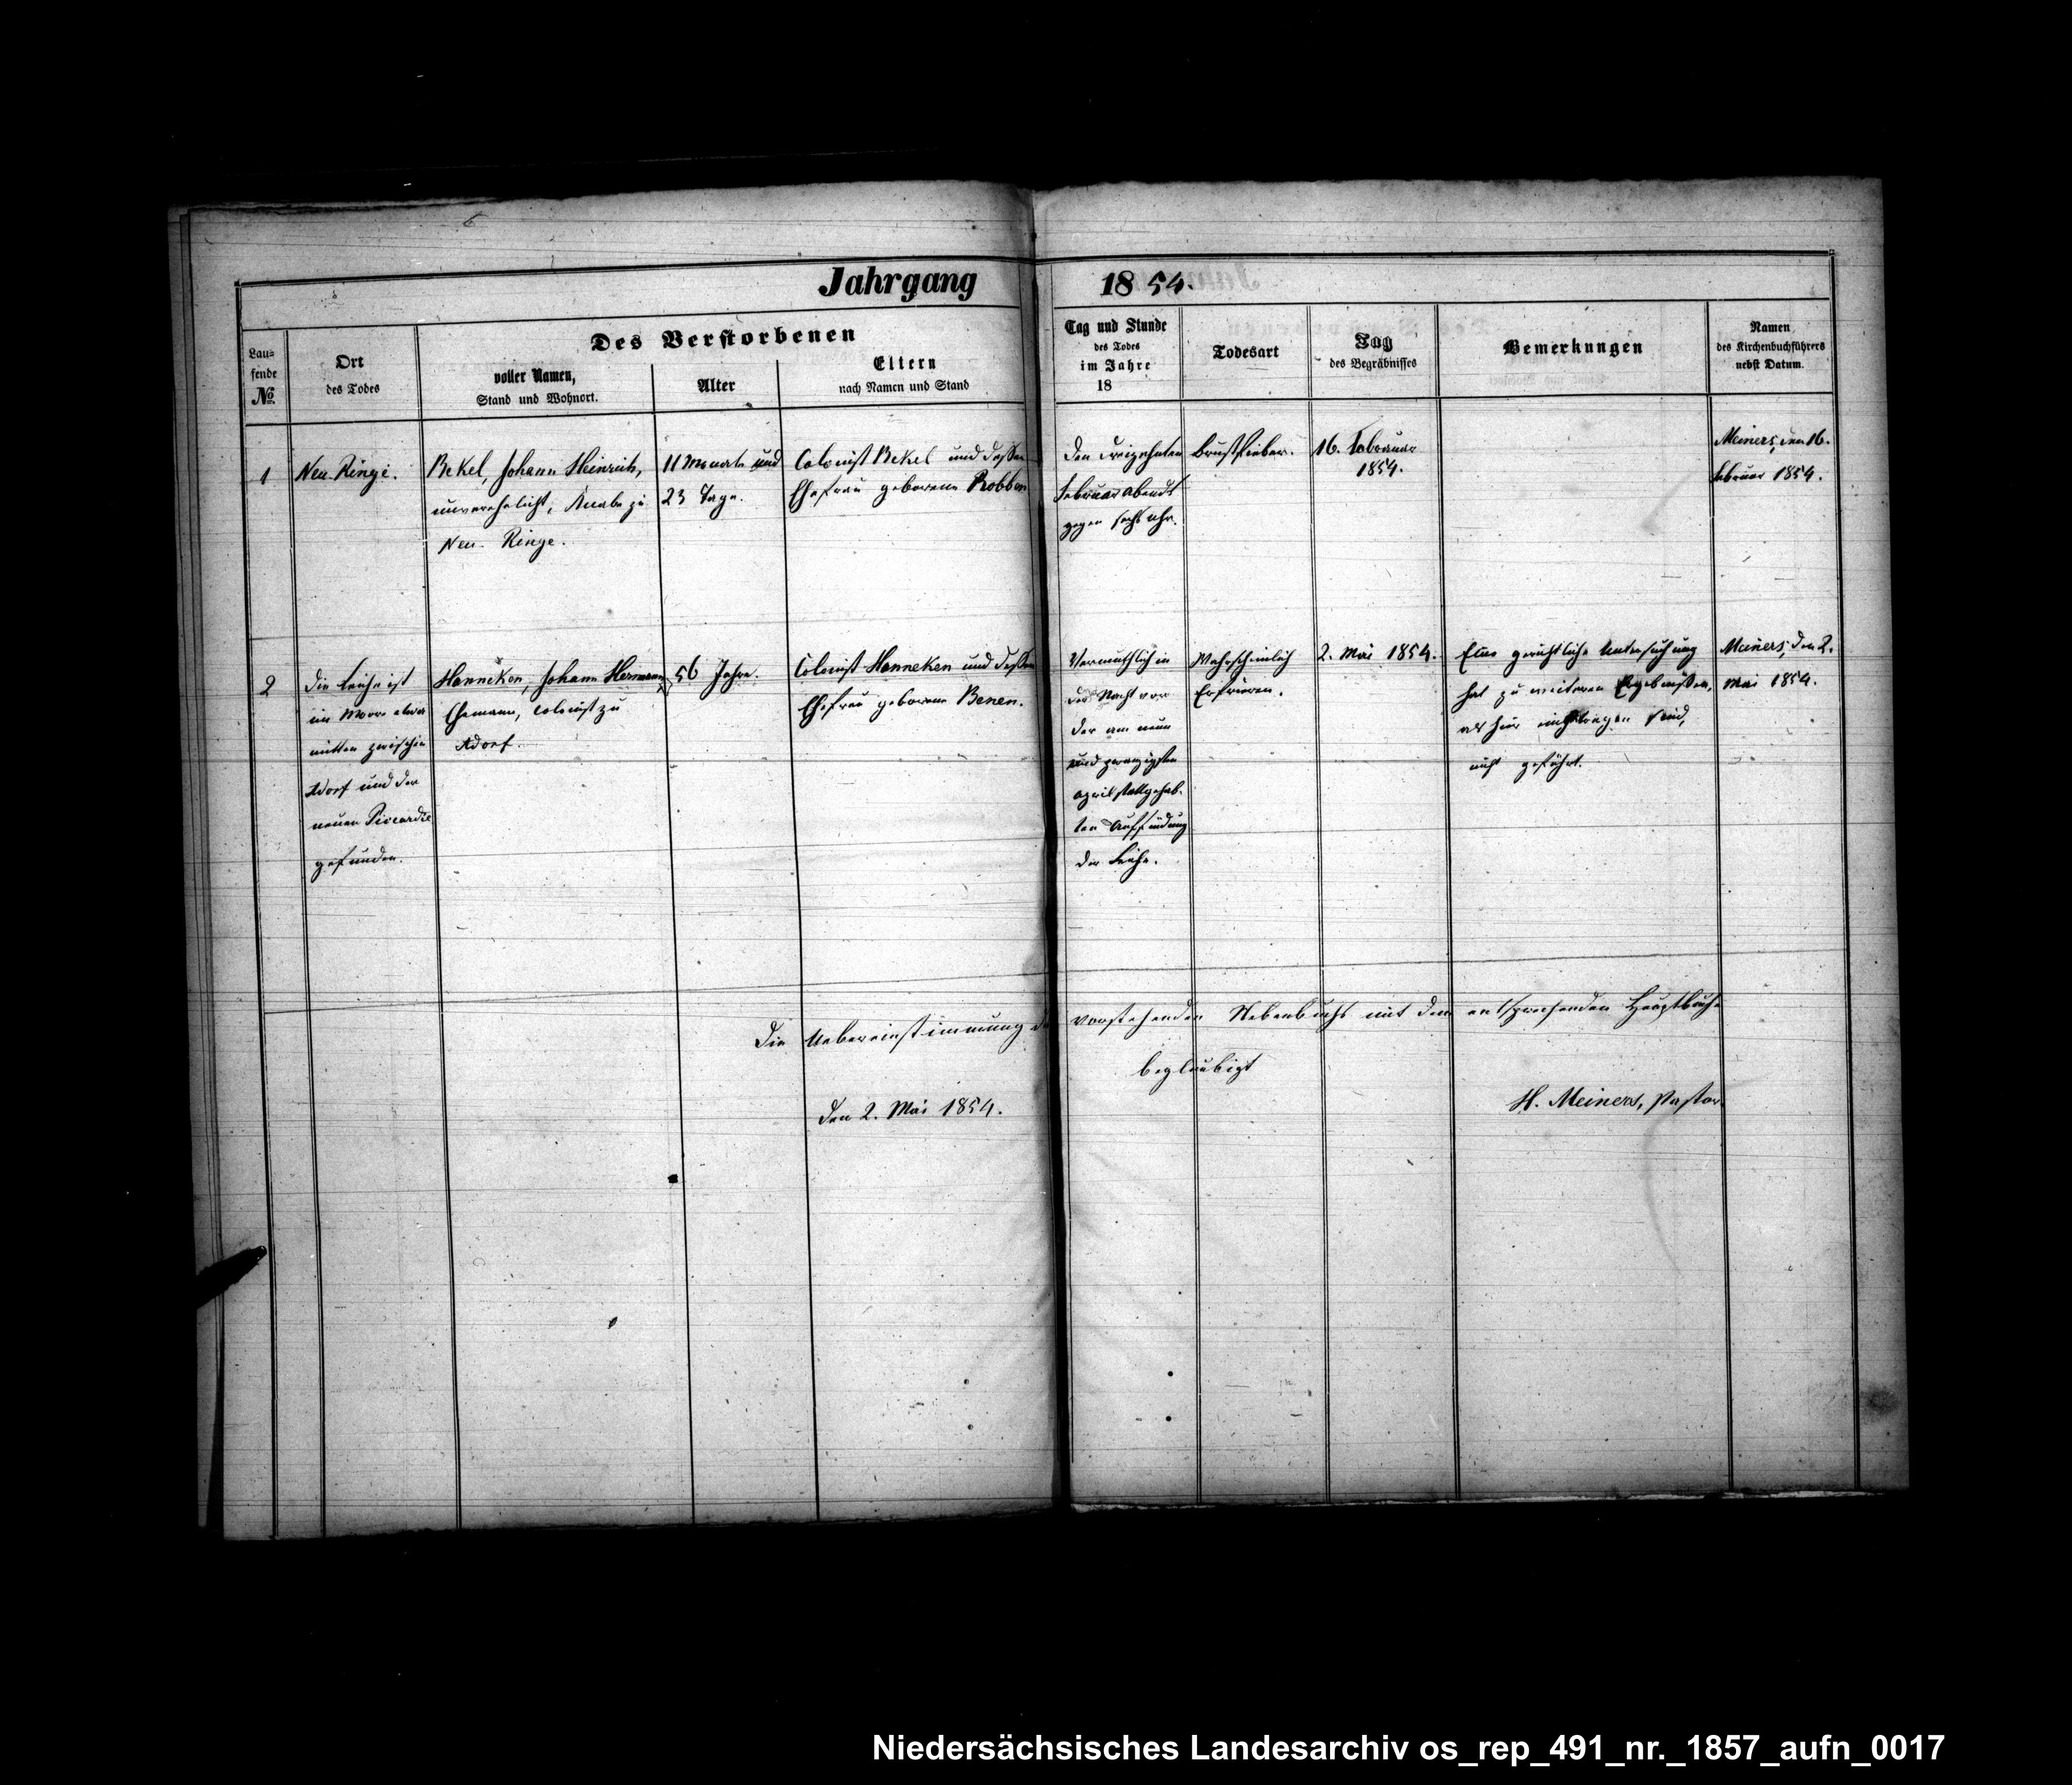 Jahrgang 1854.
Lau=
fende
No.
Ort
des Todes
Des Verstorbenen
voller Namen,
Stand und Wohnort.
Alter
Eltern
nach Namen und Stand
Tag und Stunde
des Todes
im Jahre
18
Todesart
Tag
des Begräbnisses
Bemerkungen
Namen
des Kirchenbuchführers
nebst Datum.
1
Neu-Ringe.
Bekel, Johann Heinrich,
unverehelicht, Knabe zu
Neu-Ringe.
11 Monate und
23 Tage.
Colonist Bekel und dessen
Ehefrau geborene Robben
Den dreizehnten
Februar abends
gegen sechs Uhr.
Brustfieber.
16. Februar
1854.
Meiners, den 16.
Februar 1854.
2
Die Leiche ist
im Moor etwa
mitten zwischen
Adorf und der
neuen Piccardie
gefunden.
Hanneken, Johann Hermann,
Ehemann, Colonist zu
Adorf.
56 Jahre.
Colonist Hanneken und dessen
Ehefrau geborene Benen.
Vermuthlich in
der Nacht vor
der am neun
und zwanzigsten
April stattgehab-
ten Auffindung
der Leiche.
Wahrscheinlich
Erfrieren.
2. Mai 1854.
Eine gerichtliche Untersuchung
hat zu weiteren Ergebnissen,
als hier eingetragen sind,
nicht geführt.
Meiners, den 2.
Mai 1854.
Die Uebereinstimmung des vorstehenden Nebenbuchs mit dem entsprechenden Hauptbuche
beglaubigt
den 2. Mai 1854.
H. Meiners, Pastor.
Niedersächsisches Landesarchiv os_rep_491_nr._1857_aufn_0017